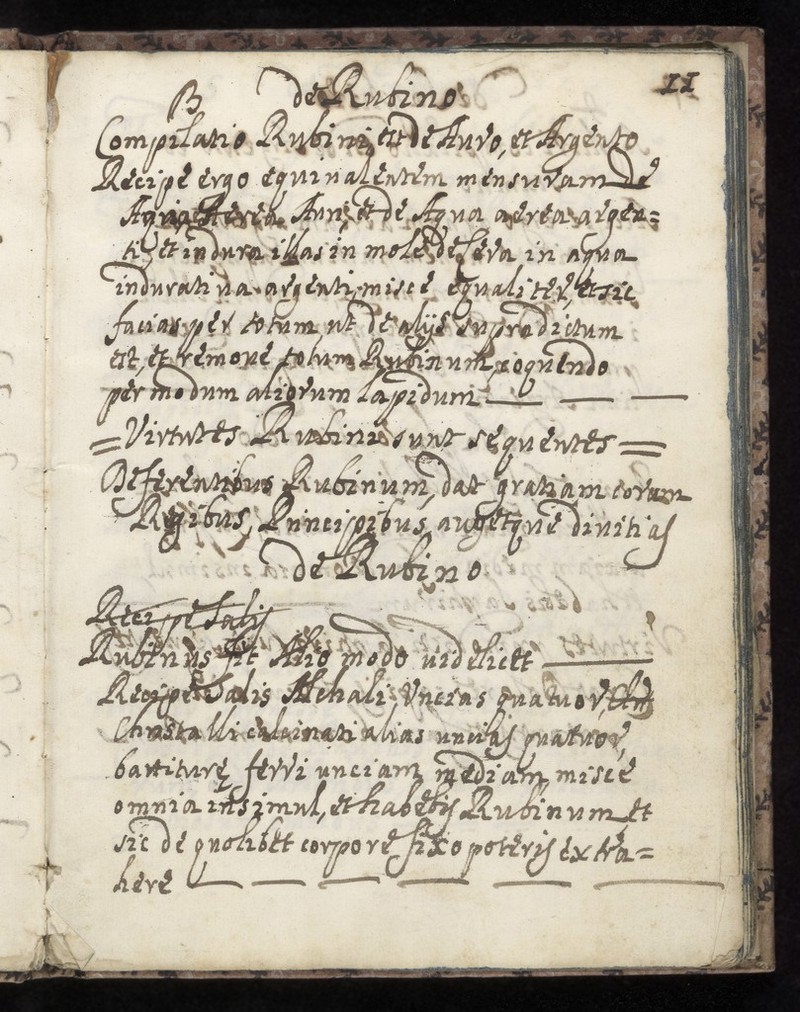 11
B de Rubino
Compilatio Rubini, est de Auro, et Argento
Recipe ergo equivalentem mensuram de
Aqua Aerea Auri, et de Aqua aerea argen=
ti, et indura illas in mole de fera in aqua
indurativa argenti, misce equaliter, et sic
facias per totum ut de alijs supradictum
est, et remove totum Rubinum, coquendo
per modum aliorum Lapidum
= Virtutes Rubini sunt sequentes =
Deferentibus Rubinum, dat gratiam coram
Regibus, Principibus, augetque divitias
de Rubino
Recipe Salis
Rubinus fit Alio modo videlicet
Recipe Salis Alchali, Uncias quatuor,
Christalli calcinati alias uncias quatuor,
battiture ferri unciam mediam misce
omnia insimul, et habebis Rubinum, et
sic de quolibet corpore fixo poteris extra=
here